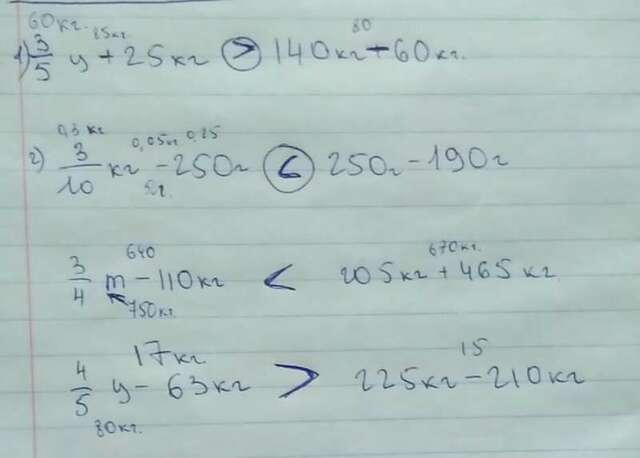 60кг. 85кг 80
1) 3/5 ц + 25кг > 140кг - 60кг.
0,3 кг 0,05кг 0,25
2) 3/10 кг - 250г < 250г - 190г
640 670кг.
3/4 т - 110кг < 205кг + 465кг
750кг.
17кг 15
4/5 ц - 63кг > 225кг - 210кг
80кг.